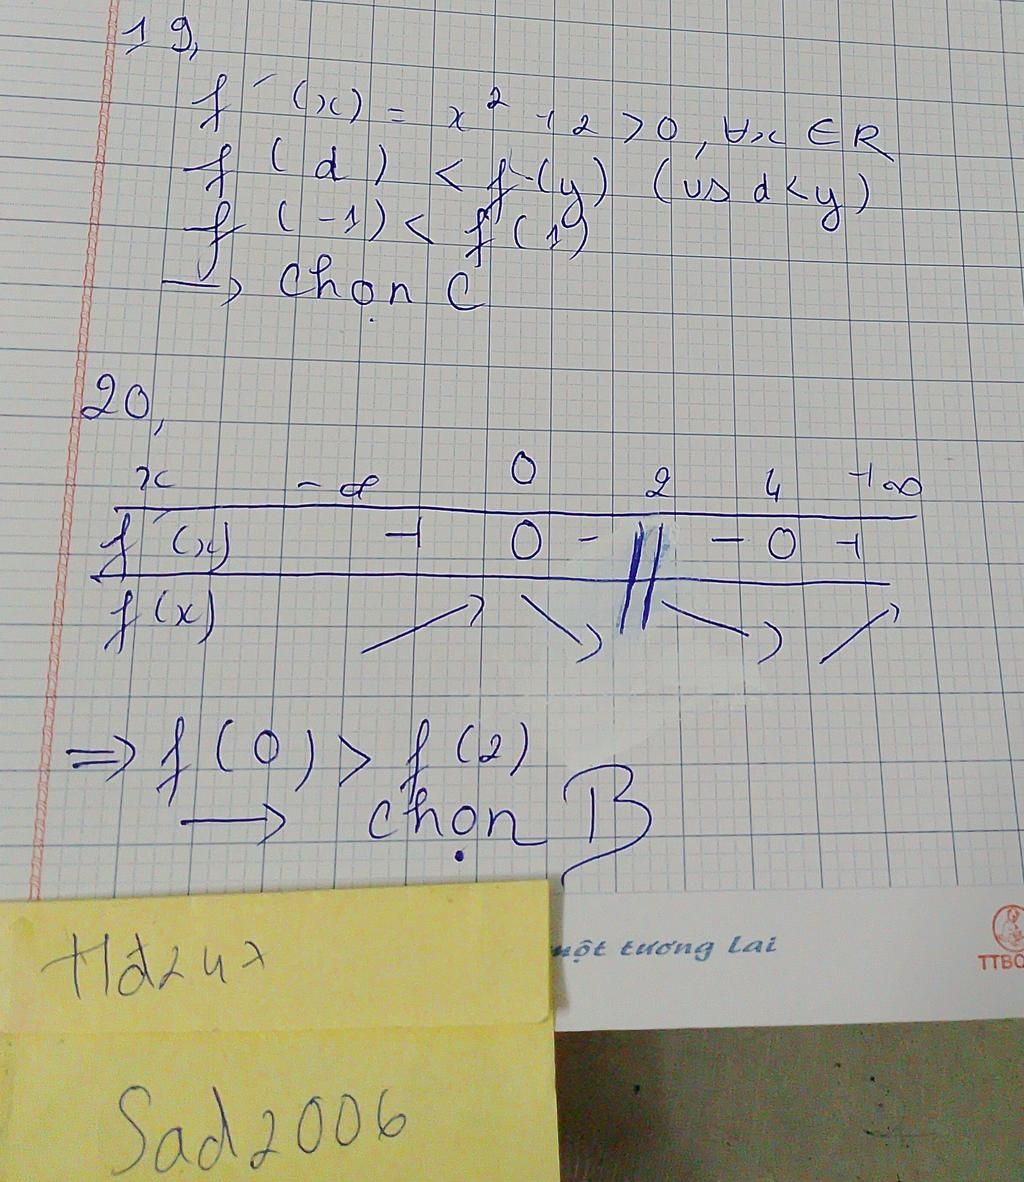 19,
f'(x) = x² + 2 > 0, ∀x ∈ R
f(d) < f(y) (vs d < y)
f(-1) < f(1)
→ chọn C
20,
x -∞ 0 2 4 +∞
f'(x) + 0 - || - 0 +
f(x) ↗ ↘ || ↘ ↗
⇒ f(0) > f(2)
→ chọn B
một tương lai
Hd247
Sad2006